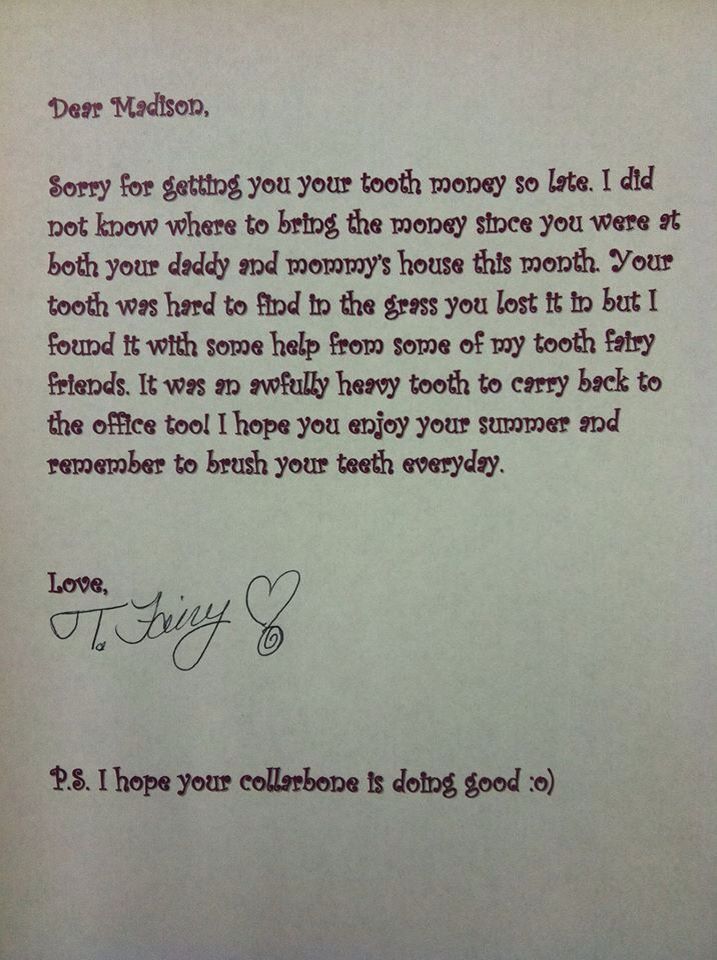 Dear Madison,
Sorry for getting you your tooth money so late. I did
not know where to bring the money since you were at
both your daddy and mommy's house this month. Your
tooth was hard to find in the grass you lost it in but I
found it with some help from some of my tooth fairy
friends. It was an awfully heavy tooth to carry back to
the office too! I hope you enjoy your summer and
remember to brush your teeth everyday.
Love,
T. Fairy
P.S. I hope your collarbone is doing good :o)